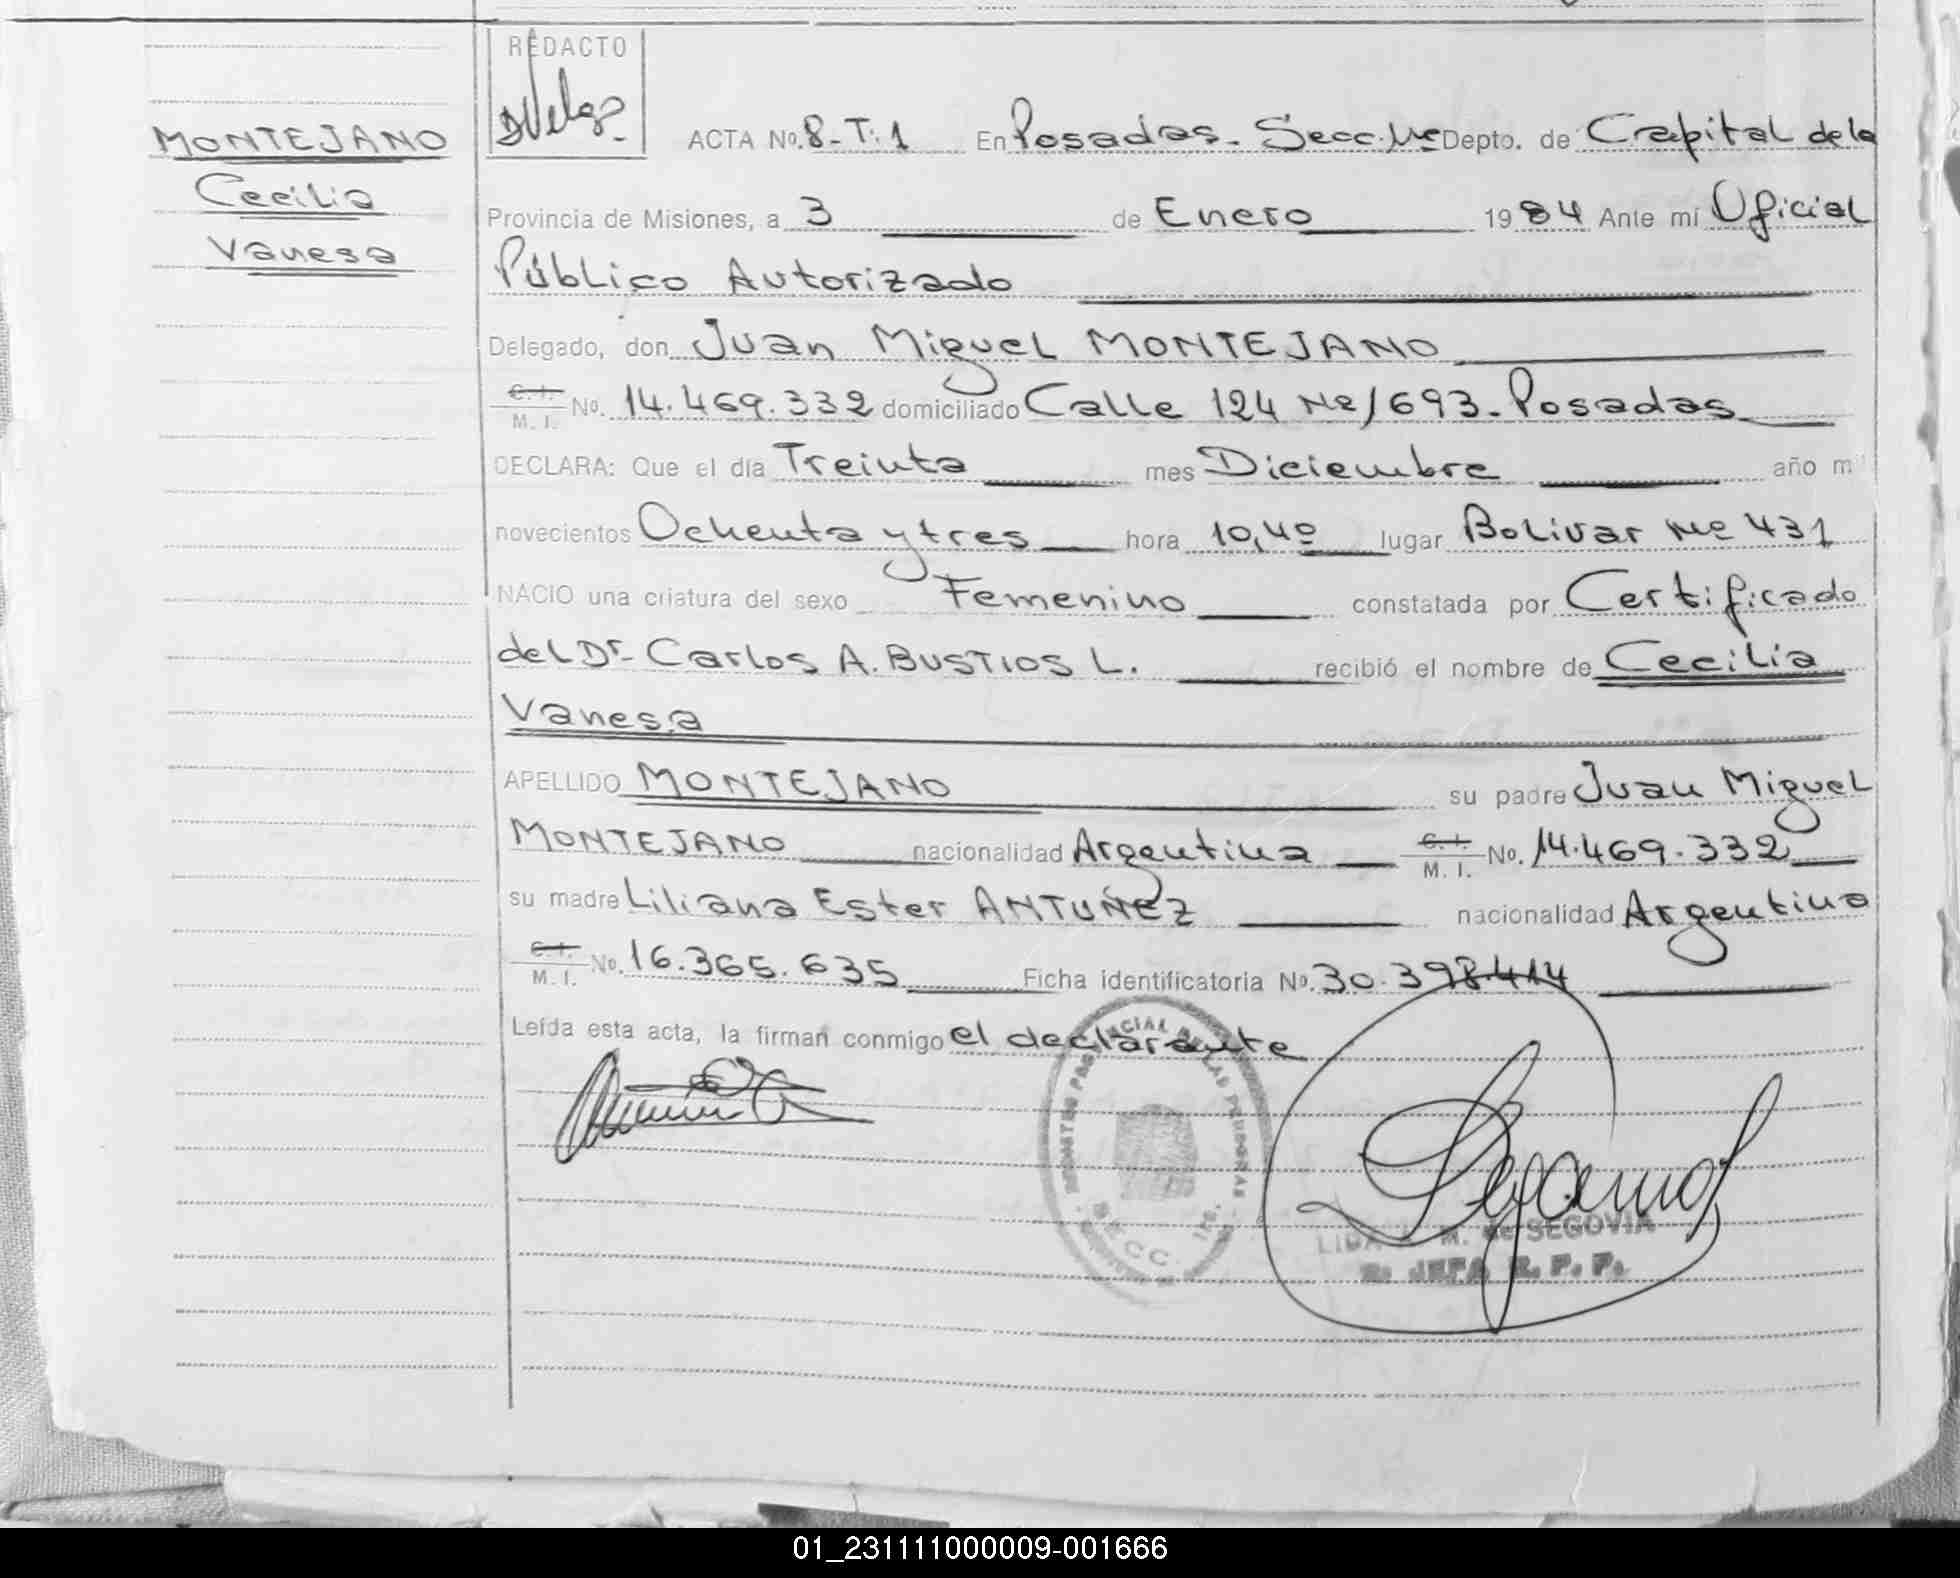 REDACTO
MONTEJANO
Cecilia
Vanesa
ACTA No. 8-T:1 En Posadas. Secc. Depto. de Capital de la
Provincia de Misiones, a 3 de Enero 1984 Ante mí Oficial
Público Autorizado
Delegado, don Juan Miguel MONTEJANO
C.I. M. I. No. 14.469.332 domiciliado Calle 124 Nº/693. Posadas
DECLARA: Que el día Treinta mes Diciembre año m
novecientos Ochenta y tres hora 10,40 lugar Bolivar Nº 431
NACIO una criatura del sexo Femenino constatada por Certificado
del Dr. Carlos A. BUSTIOS L. recibió el nombre de Cecilia
Vanesa
APELLIDO MONTEJANO su padre Juan Miguel
MONTEJANO nacionalidad Argentina C.I. M. I. No. 14.469.332
su madre Liliana Ester ANTUÑEZ nacionalidad Argentina
C.I. M. I. No. 16.365.635 Ficha identificatoria No. 30.398.414
Leída esta acta, la firman conmigo el declarante
de SEGOVIA
JEFA R. P. P.
01_231111000009-001666